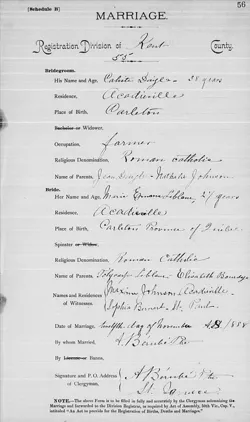 [Schedule B]
56
MARRIAGE.
Registration Division of Kent County.
Bridegroom.
His Name and Age, Calixte Daigle 28 years
Residence, Acadieville
Place of Birth, Carleton
Bachelor or Widower,
Occupation, farmer
Religious Denomination, Roman Catholic
Name of Parents, Jean Daigle Nathalie Johnson
Bride.
Her Name and Age, Marie Leblanc 27 years
Residence, Acadieville
Place of Birth, Carleton Province of Quebec
Spinster or Widow,
Religious Denomination, Roman Catholic
Name of Parents, Leblanc - Elisabeth
Names and Residences of Witnesses. Maxime Johnson Acadieville
Sophie St. Paul
Date of Marriage, twelfth day of November 1888
By whom Married,
By License or Banns,
Signature and P. O. Address of Clergyman,
NOTE.—The above Form is to be filled in fully and accurately by the Clergyman solemnizing the
Marriage and forwarded to the Division Registrar, as required by Act of Assembly, 50th Vic., Cap. V.,
intituled "An Act to provide for the Registration of Births, Deaths and Marriages."